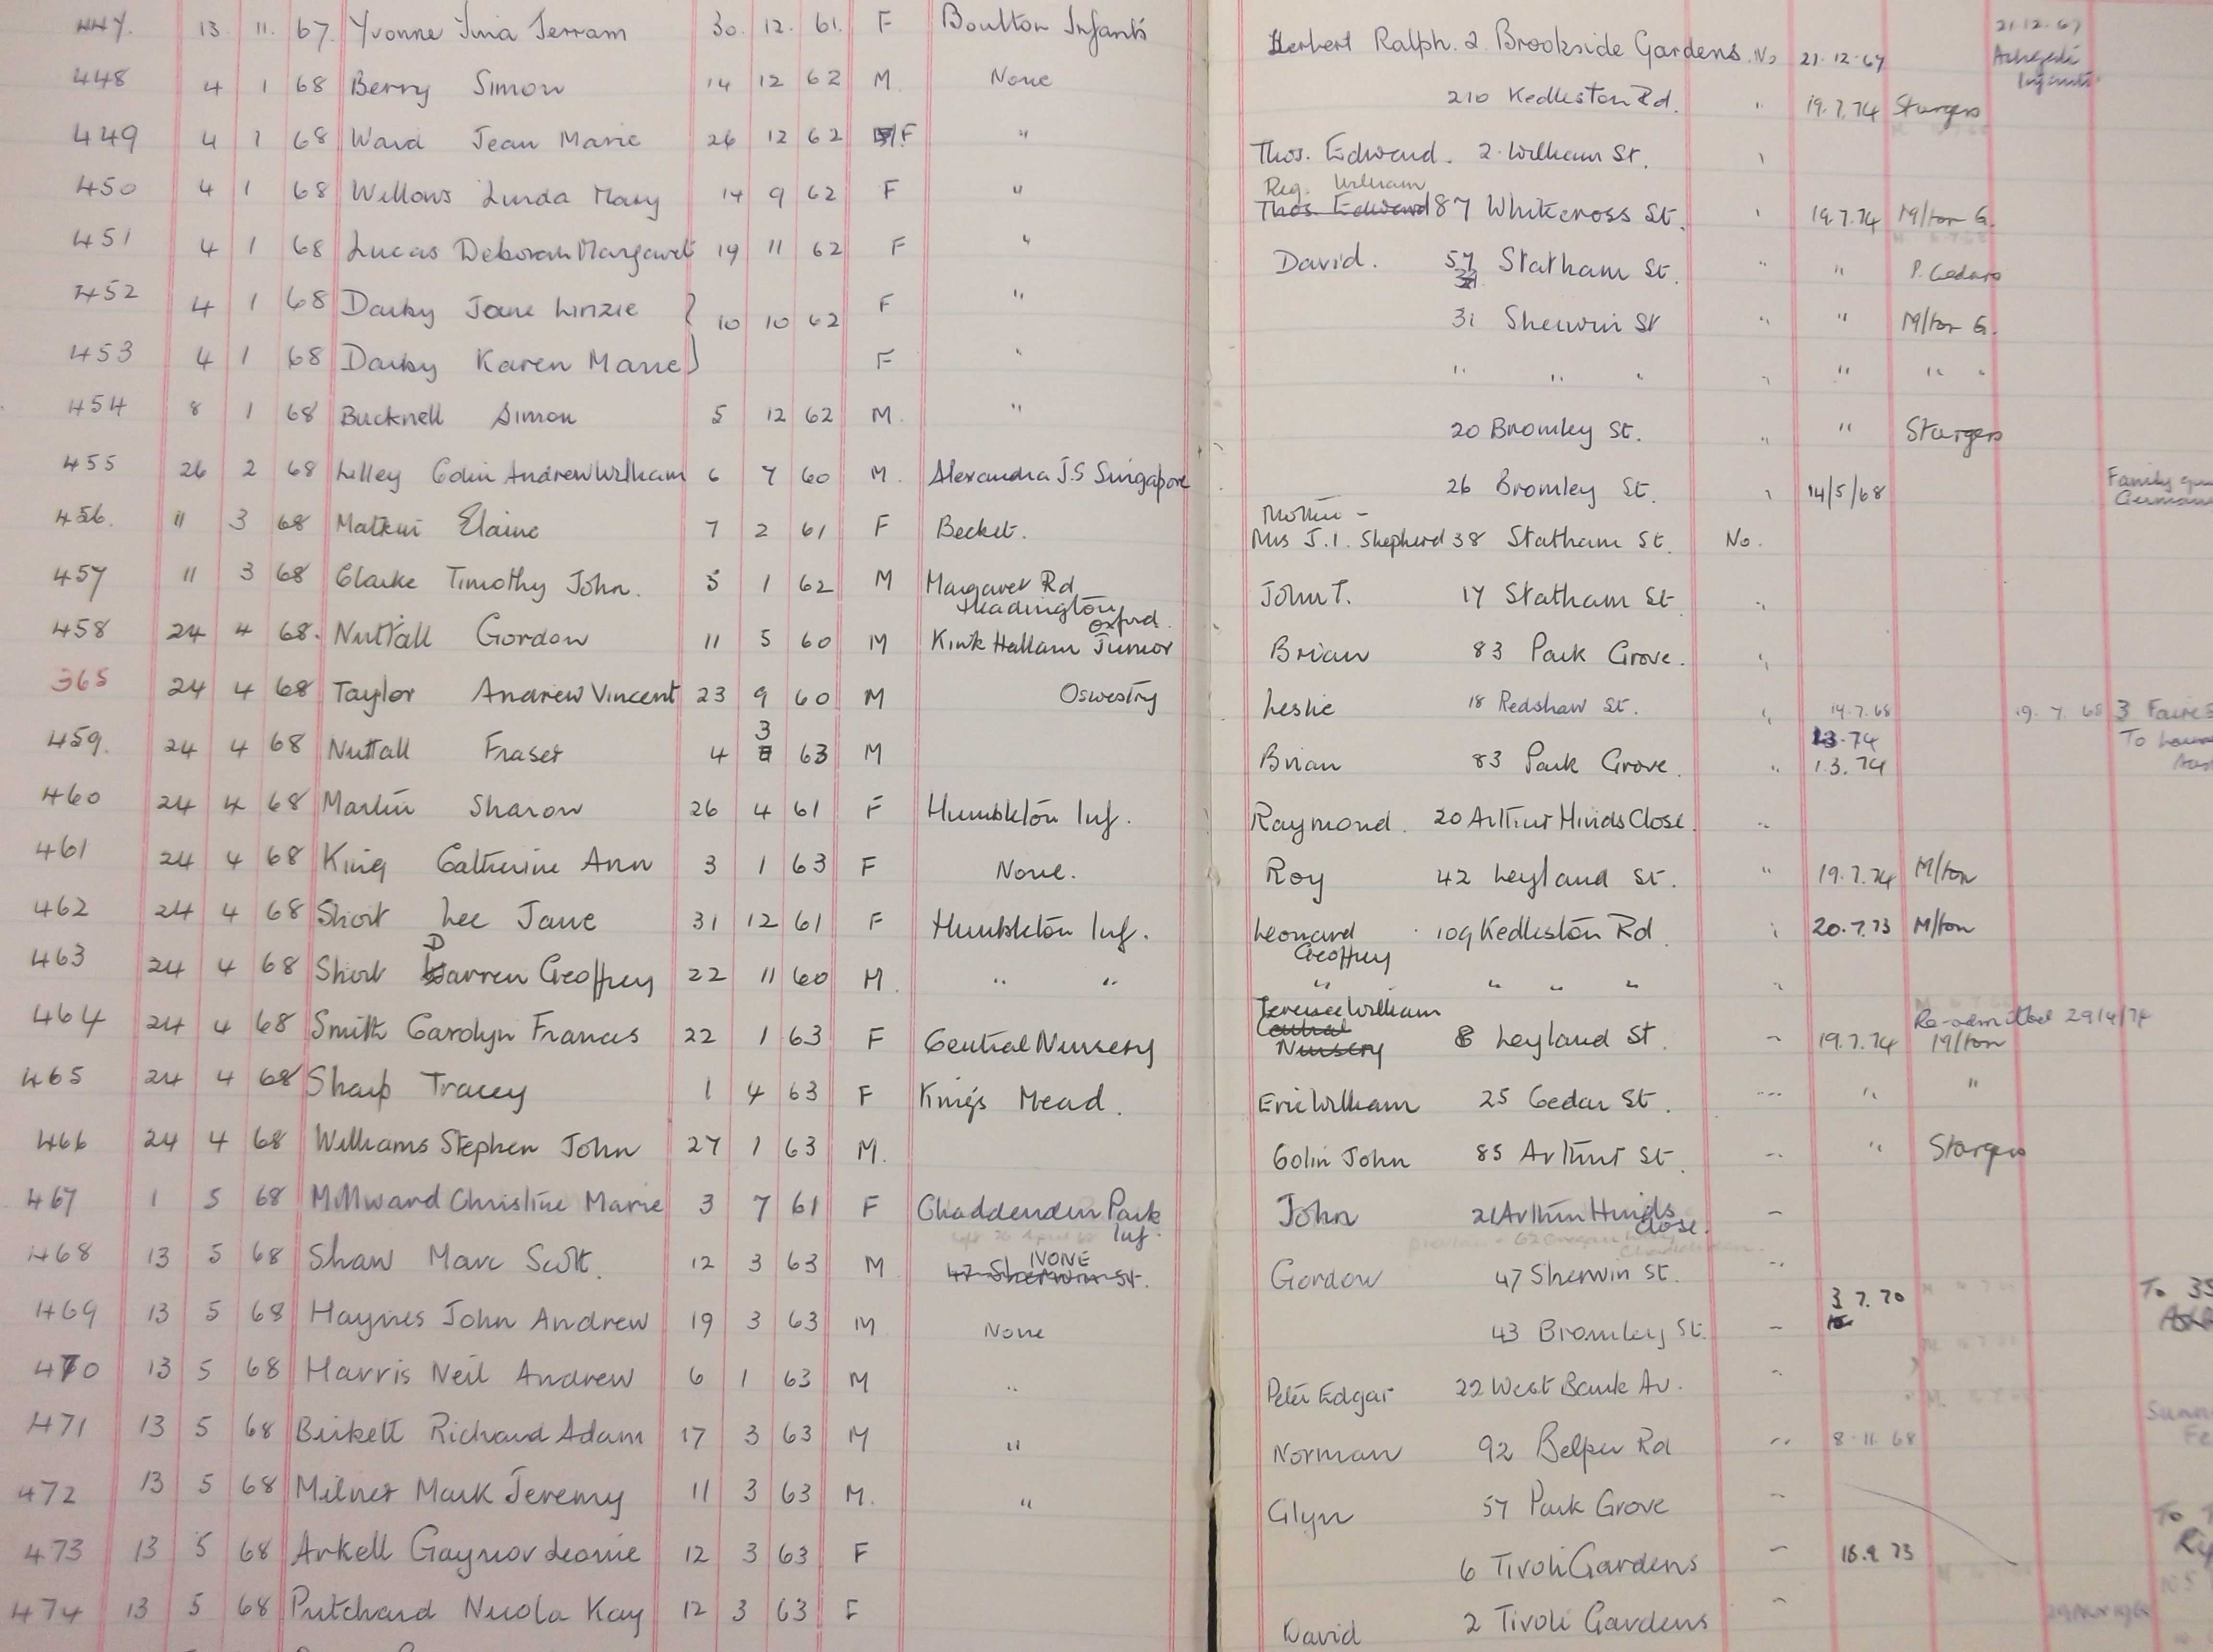 447. 13 11. 67. Yvonne Tina Jerram 30. 12. 61. F Boulton Infants Herbert Ralph. 2. Brookside Gardens. No 21.12.67 21.12.67
Infants
448 4 1 68 Berry Simon 14 12 62 M. None 210 Kedleston Rd. " 19.7.74 Sturgess
449 4 1 68 Ward Jean Marie 26 12 62 F " Thos. Edward. 2. William St. "
Reg. William
450 4 1 68 Willows Linda Mary 14 9 62 F " Thos. Edward 87 Whitecross St. " 19.7.74 M/ton G.
451 4 1 68 Lucas Deborah Margaret 19 11 62 F " David. 57 Statham St. " " P. Cedars
452 4 1 68 Darby Jane Linzie } 10 10 62 F " 31 Sherwin St " " M/ton G.
453 4 1 68 Darby Karen Marie } F " " " " " " " "
454 8 1 68 Bucknell Simon 5 12 62 M. " 20 Bromley St. " " Sturgess
455 26 2 68 Lilley Colin Andrew William 6 7 60 M. Alexandra J.S Singapore 26 Bromley St. " 14/5/68 Family
Mother -
456. 11 3 68 Matkin Elaine 7 2 61 F Becket. Mrs J.I. Shepherd 38 Statham St. No.
457 11 3 68 Clarke Timothy John. 5 1 62 M Margaret Rd John T. 17 Statham St. "
Headington
Oxford.
458 24 4 68. Nuttall Gordon 11 5 60 M Kirk Hallam Junior Brian 83 Park Grove. "
365 24 4 68 Taylor Andrew Vincent 23 9 60 M Oswestry Leslie 18 Redshaw St. " 19.7.68 19.7.68 3
3 13.74 To
459. 24 4 68 Nuttall Fraser 4 63 M Brian 83 Park Grove. " 1.3.74
460 24 4 68 Martin Sharon 26 4 61 F Humbleton Inf. Raymond. 20 Arthur Hinds Close. "
461 24 4 68 King Catherine Ann 3 1 63 F None. Roy 42 Leyland St. " 19.7.74 M/ton
462 24 4 68 Short Lee Jane 31 12 61 F Humbleton Inf. Leonard 109 Kedleston Rd " 20.7.73 M/ton
Geoffrey
463 24 4 68 Short Darren Geoffrey 22 11 60 M. " " " " " " "
Terence William Re-admitted 29/4/74
464 24 4 68 Smith Carolyn Frances 22 1 63 F Central Nursery Central Nursery 8 Leyland St. " 19.7.74 M/ton
465 24 4 68 Sharp Tracey 1 4 63 F King's Mead. Eric William 25 Cedar St. " " "
466 24 4 68 Williams Stephen John 27 1 63 M. Colin John 85 Arthur St. " " Sturgess
467 1 5 68 Millward Christine Marie 3 7 61 F Chaddenden Park John 21 Arthur Hinds –
Inf. Close.
NONE
468 13 5 68 Shaw Marc Scott. 12 3 63 M 47 Sherwin St. Gordon 47 Sherwin St. "
3 7.70 To
469 13 5 68 Haynes John Andrew 19 3 63 M None 43 Bromley St. –
470 13 5 68 Harris Neil Andrew 6 1 63 M " Peter Edgar 22 West Bank Av. "
471 13 5 68 Birkett Richard Adam 17 3 63 M " Norman 92 Belper Rd " 8.11.68
472 13 5 68 Milner Mark Jeremy 11 3 63 M. " Glyn 57 Park Grove –
To
473 13 5 68 Arkell Gaynor Leonie 12 3 63 F 6 Tivoli Gardens –
474 13 5 68 Pritchard Nicola Kay 12 3 63 F David 2 Tivoli Gardens –